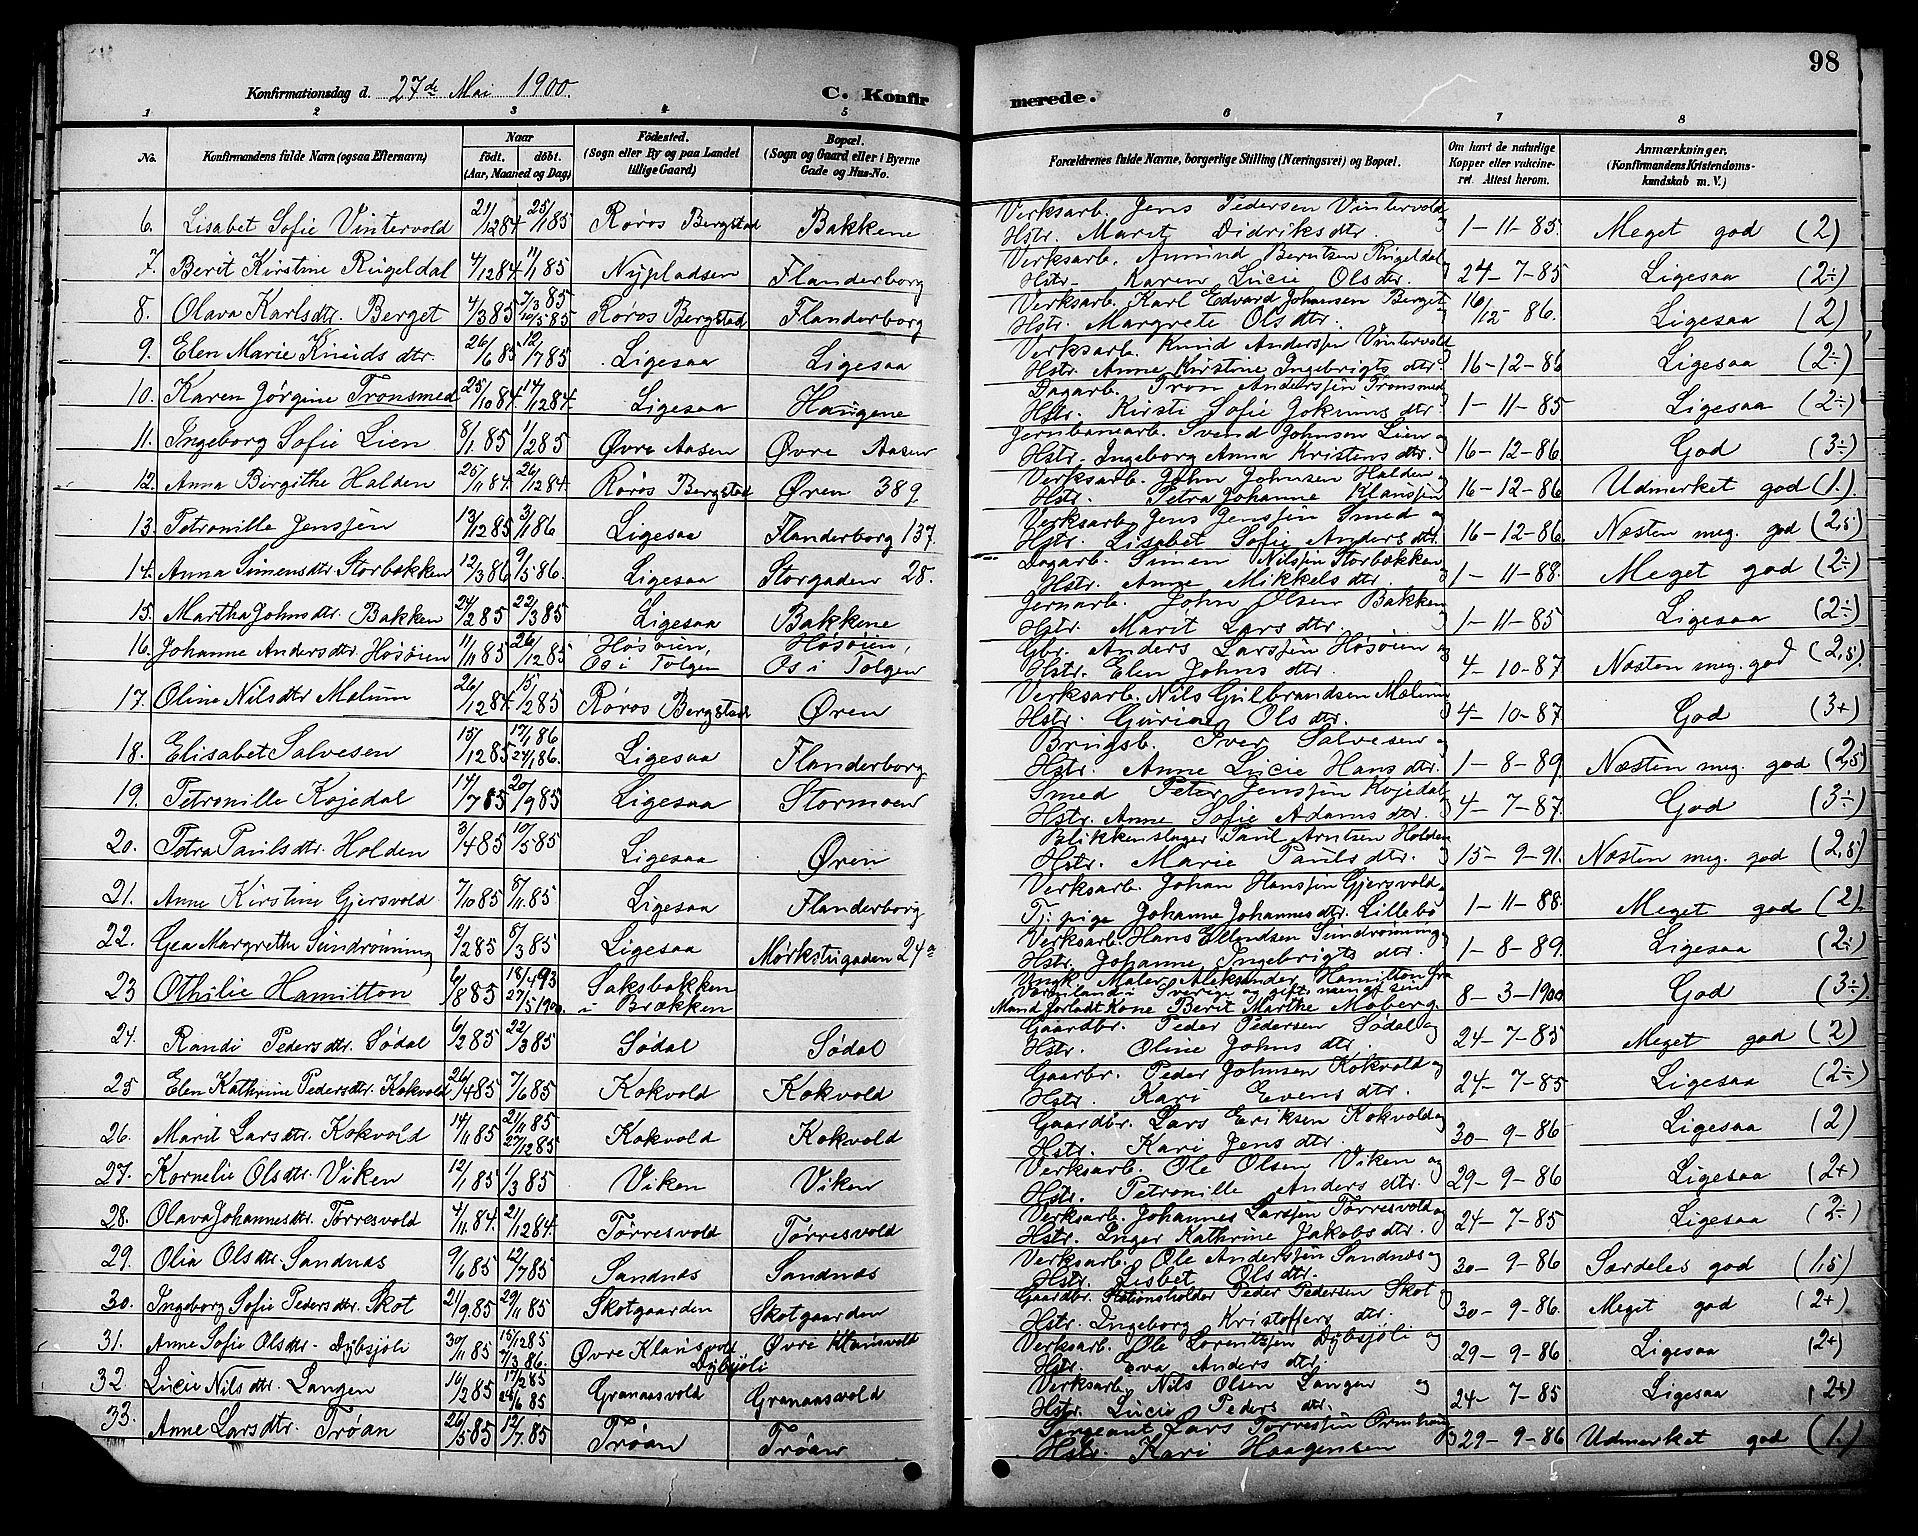 98
Konfirmationsdag d. 27de Mai 1900.
C. Konfirmerede.
1 2 3 4 5 6 7 8
No. Konfirmandens fulde Navn (ogsaa Efternavn) Naar født. døbt. (Aar, Maaned og Dag) Fødested. (Sogn eller By og paa Landet tillige Gaard) Bopæl. (Sogn og Gaard eller i Byerne Gade og Hus-No. Forældrenes fulde Navne, borgerlige Stilling (Næringsvei) og Bopæl. Om havt de naturlige Kopper eller vakcineret. Attest herom. Anmærkninger. (Konfirmandens Kristendomskundskab m. V.)
6. Lisabet Sofie Vintervold 21/12 84. 25/1 85 Røros Bergstad Bakkene Verksarb. Jens Pedersen Vintervold og Hstr. Marit Didriksdtr. 1-11-85. Meget god (2)
7. Berit Kirstine Rugeldal 4/12 84. 11/1 85 Nypladsen Flanderborg Verksarb. Amund Berntsen Rugeldal og Hstr. Karen Lucie Olsdtr. 24-7-85 Ligesaa (2÷)
8. Olava Karlsdtr. Berget 4/3 85 7/3 85 10/5 85 Røros Bergstad Flanderborg Verksarb. Karl Edvard Johansen Berget og Hstr. Margrete Olsdtr. 16/12-86. Ligesaa (2)
9. Elen Marie Knudsdtr. 26/6 85 12/7 85 Ligesaa Ligesaa Verksarb. Knud Anderssen Vintervold Hstr. Anne Kirstine Ingebrigtsdtr. 16-12-86 Ligesaa (2÷)
10. Karen Jørgine Tronsmed 25/10 84. 14/12 84. Ligesaa Haugene Dagarb. Tron Anderssen Tronsmed Hstr. Kirsti Sofie Jokumsdtr. 1-11-85 Ligesaa (2÷)
11. Ingeborg Sofie Lien 8/1 85 1/2 85 Øvre Aasen Øvre Aasen Jernbanearb. Svend Johnsen Lien og Hstr. Ingeborg Anna Kristensdtr. 16-12-86 God (3÷)
12. Anna Birgithe Halden 25/11 84. 26/12 84. Røros Bergstad Øren 389. Verksarb. John Johnsen Halden og Hstr. Petra Johanne Klaussen 16-12-86 Udmerket god (1.)
13. Petronille Jenssen 13/12 85 3/1 86 Ligesaa Flanderborg 137. Verksarb. Jens Jenssen Smed og Hstr. Lisabet Sofie Andersdtr. 16-12-86 Næsten meg. god (2,5)
14. Anna Simensdtr. Storbakken 12/3 86 9/5 86. Ligesaa Storgaden 28. Dagarb. Simen Nilssen Storbakken Hstr. Anne Mikkelsdtr. 1-11-88. Meget god (2÷)
15. Martha Johnsdtr. Bakken 24/2 85 22/3 85 Ligesaa Bakkene Jernarb. John Olsen Bakken Hstr. Marit Larsdtr. 1-11-85 Ligesaa (2÷)
16. Johanne Andersdtr. Høsøien 11/11 85 26/12 85 Høsøien, Os i Tolgen Høsøien, Os i Tolgen Gbr. Anders Larssen Høsøien og Hstr. Elen Johnsdtr. 4-10-87 Næsten meg. god (2,5)
17. Oline Nilsdtr Mælum 26/12 84. 15/2 85 Røros Bergstad Øren Verksarb. Nils Gulbrandsen Mælum Hstr. Gurine Olsdtr. 4-10-87 God (3+)
18. Elisabet Salvesen 15/12 85 17/1 86 24/1 86. Ligesaa Flanderborg Brugsb. Iver Salvesen og Hstr. Anne Lucie Hansdtr. 1-8-89 Næsten meg. god (2,5)
19. Petronille Kojedal 14/7 85 20/9 85 Ligesaa Stormoen Smed Peter Jenssen Kojedal Hstr. Anne Sofie Adamsdtr. 4-7-87. God (3÷)
20. Petra Paulsdtr. Holden 3/4 85 10/5 85 Ligesaa Øren Blikkenslager Paul Arntsen Holden Hstr. Marie Paulsdtr. 15-9-91. Næsten meg. god (2,5)
21. Anne Kirstine Gjersvold 7/10 85 8/11 85 Ligesaa Flanderborg Verksarb. Johan Hanssen Gjersvold. Tj: pige Johanne Johannesdtr. Lillebo 1-11-88. Meget god (2)
22. Gea Margrethe Sundrønning 2/2 85 8/3 85 Ligesaa Mørkstugaden 24a Verksarb. Hans Ellendsen Sundrønning Hstr. Johanne Ingebrigtsdtr. 1-8-89. Ligesaa (2÷)
23 Othilie Hamilton 6/8 85 18/4 93 27/5 1900. Saksbakken i Brækken Ungk. Maler Aleksander Hamilton fra Vermland i Sverige og gift, men af sin Mand forladt Kone Berit Marthe Moberg. 8-3-1900 God (3÷)
24. Randi Pedersdtr. Sødal 6/2 85 22/3 85 Sødal Sødal Gaardbr. Peder Pedersen Sødal og Hstr. Oline Johnsdtr. 24-7-85 Meget god (2)
25 Elen Kathrine Pedersdtr. Kokvold 26/4 85 7/6 85 Kokvold Kokvold Gaarbr. Peder Johnsen Kokvold og Hstr. Kari Evensdtr. 24-7-85 Ligesaa (2÷)
26. Marit Larsdtr. Kokvold 14/11 85 21/11 85 27/12 85 Kokvold Kokvold Gaardbr. Lars Eriksen Kokvold og Hstr. Kari Jensdtr. 30-9-86 Ligesaa (2)
27. Kornelie Olsdtr. Viken 12/1 85 1/3 85 Viken Viken Verksarb. Ole Olsen Viken og Hstr. Petronille Andersdtr. 29-9-86 Ligesaa (2+)
28. Olava Johannesdtr. Tørresvold 4/11 84. 21/12 84. Tørresvold Tørresvold Verksarb. Johannes Larssen Tørresvold og Hstr. Inger Kathrine Jakobsdtr. 24-7-85 Ligesaa (2÷)
29. Olia Olsdtr. Sandnæs 9/6 85 12/7 85 Sandnæs Sandnæs Verksarb. Ole Anderssen Sandnæs og Hstr. Lisbet Olsdtr. 30-9-86 Særdeles god (1,5)
30. Ingeborg Sofie Pedersdtr. Skot 21/9 85 29/11 85 Skotgaarden Skotgaarden Gaardbr. Stationsholder Peder Pedersen Skot og Hstr. Ingeborg Kristoffersdtr. 30-9-86. Meget god (2+)
31. Anne Sofie Olsdtr - Dybsjøli 30/11 85 15/12 85 7/3 86. Øvre Klausvold Dybsjøli Øvre Klausvold Verksarb. Ole Lorentssen Dybsjøli og Hstr. Eva Andersdtr. 29-9-86 Ligesaa (2+)
32. Lucie Nilsdtr. Langen 10/2 85 17/2 85 24/6 85 Granaasvold Granaasvold Verksarb. Nils Olsen Langen og Hstr. Lucie Pedersdtr. 24-7-85 Ligesaa (2+)
33. Anne Larsdtr. Trøan 26/5 85 12/7 85 Trøan Trøan Sergeant Lars Tørressen og Hstr. Kari Haagensen 29-9-86 Udmerket god (1.)